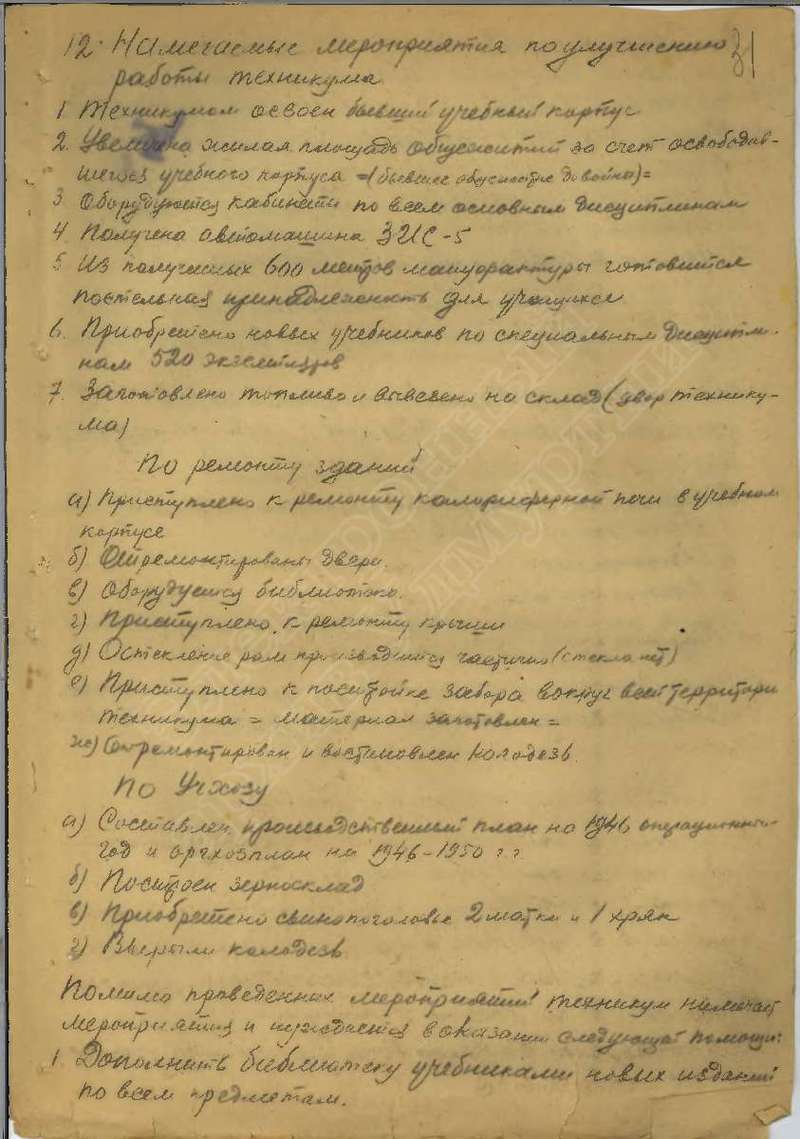 31
12. Намечаемые мероприятия по улучшению
работы техникума
1 Техникумом освоен бывший учебный корпус
2. Увеличена жилая площадь общежитий за счет освободив-
шегося учебного корпуса =(бывшее общежитие до войны)=
3. Оборудуются кабинеты по всем основным дисциплинам
4. Получена автомашина ЗИС-5
5 Из полученных 600 метров мануфактуры готовится
постельная принадлежность для учащихся
6. Приобретено новых учебников по специальным дисципли-
нам 520 экземпляров
7. Заготовлено топливо и вывезено на склад (двор технику-
ма)
По ремонту зданий
а) Приступлено к ремонту калориферной печи в учебном
корпусе
б) Отремонтированы двери.
в) Оборудуется библиотека.
г) Приступлено к ремонту крыши
д) Остекление рам производится частично (стекла нет)
е) Приступлено к постройке забора вокруг всей территори
техникума = материал заготовлен =
ж) Отремонтирован и востановлен колодезь.
По Учхозу
а) Составлен производственный план на 1946 операционный
год и оргхозплан на 1946-1950 г.г.
б) Построен зерносклад
в) Приобретено свинопоголовье 2 матки и 1 хряк
г) Вырыли колодезь.
Помимо проведенных мероприятий техникум намечает
мероприятия и нуждается в оказании следующей помощи:
1. Дополнить библиотеку учебниками новых изданий
по всем предметам.